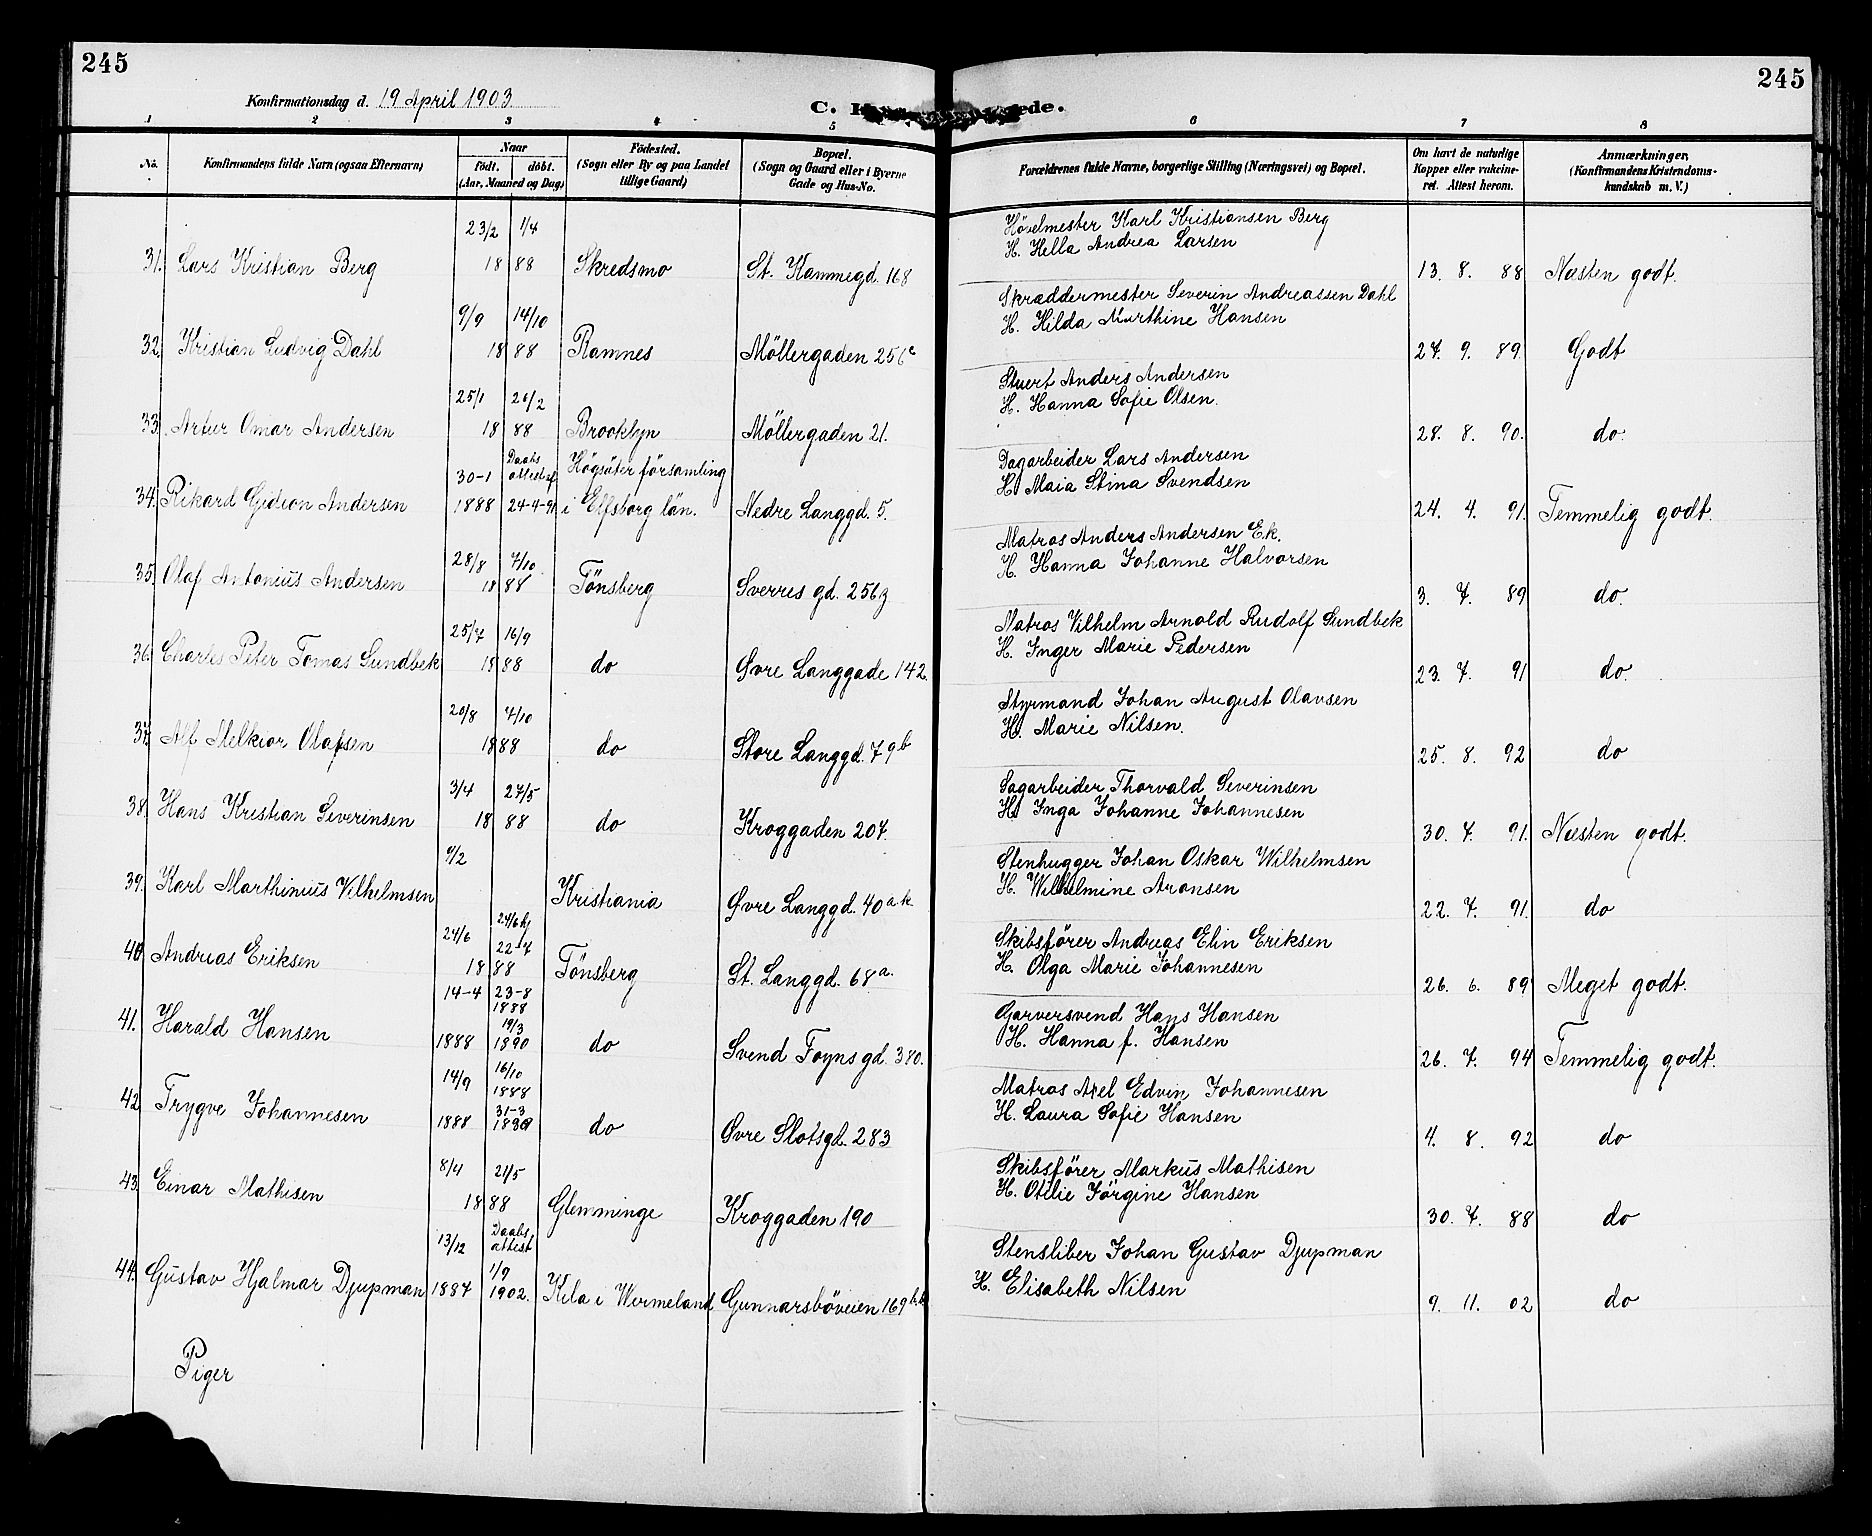 245
245
Konfirmationsdag d. 19 April 1903
C. ede.
1 2 3 4 5 6 7 8
No. Konfirmandens fulde Navn (ogsaa Efternavn) Naar födt. döbt. (Aar, Maaned og Dag) Födested. (Sogn eller By og paa Landet tillige Gaard) Bopæl. (Sogn og Gaard eller i Byerne Gade og Hus-No. Forældrenes fulde Navne, borgerlige Stilling (Næringsvei) og Bopæl. Om havt de naturlige Kopper eller vakcineret. Attest herom. Anmærkninger. (Konfirmandens Kristendomskundskab m. V.)
23/2 1/4 Hövelmester Karl Kristiansen Berg
H. Hella Andrea Larsen
31. Lars Kristian Berg 18 88 Skredsmo St. Kammegd. 168 13. 8. 88 Næsten godt.
9/9 14/10 Skræddermester Severin Andreassen Dahl
H. Hilda Marthine Hansen
32. Kristian Ludvig Dahl 18 88 Ramnes Möllergaden 256c 27. 9. 89. Godt
25/1 26/2 Stuert Anders Andersen
H. Hanna Sofie Olsen.
33. Artur Omar Andersen 18 88 Brooklyn Möllergaden 21. 28. 8. 90. do.
30-1 Daabsattest af Högsäter församling Dagarbeider Lars Andersen
H. Maia Stina Svendsen
34. Rikard Gideon Andersen 1888 24-4-91 i Elfsborg län. Nedre Langgd. 5. 24. 4. 91. Temmelig godt.
28/8 7/10 Matros Anders Andersen Ek.
H. Hanna Johanne Halvorsen
35. Olaf Antonius Andersen 18 88 Tönsberg Sverres gd. 256g 3. 7. 89 do.
25/7 16/9 Matros Vilhelm Arnold Rudolf Sundbek
H. Inger Marie Pedersen
36. Charles Peter Tomas Sundbek 18 88 do Øvre Langgade 142. 23. 7. 91 do.
20/8 7/10 Styrmand Johan August Olavsen
H. Marie Nilsen.
37. Alf Melkior Olafsen 18 88 do Store Langgd. 79b 25. 8. 92 do
3/4 27/5 Sagarbeider Thorvald Severinsen
H. Inga Johanne Johannesen
38. Hans Kristian Severinsen 18 88 do Kroggaden 207. 30. 7. 91. Næsten godt.
9/2 Stenhugger Johan Oskar Wilhelmsen
H. Wilhelmine Aronsen
39. Karl Marthinius Vilhelmsen Kristiania Øvre Langgd. 40a.k 22. 7. 91. do
24/6 24/6 hj 22-7 Skibsförer Andreas Elin Eriksen
H. Olga Marie Johannesen
40. Andreas Eriksen 18 88 Tönsberg St. Langgd. 68a. 26. 6. 89 Meget godt.
14-4 23-8 1888 Garversvend Hans Hansen
H. Hanna f. Hansen
41. Harald Hansen 1888 19/3 1890 do Svend Foyns gd. 380. 26. 7. 94 Temmelig godt.
14/9 16/10 1888 Matros Axel Edvin Johannesen
H. Laura Sofie Hansen
42 Trygve Johannesen 1888 31-3 1890 do Øvre Slotsgd. 283 4. 8. 92 do
8/4 21/5 Skibsförer Markus Mathisen
H. Otilie Jörgine Hansen
43. Einar Mathisen 18 88 Glemminge Kroggaden 190 30. 7. 88 do
13/12 Daabsattest Stensliber Johan Gustav Djupman
H. Elisabeth Nilsen
44. Gustav Hjalmar Djupman 1887 1/9 1902. Kila i Wermeland Gunnarsböveien 169 9. 11. 02 do
Piger